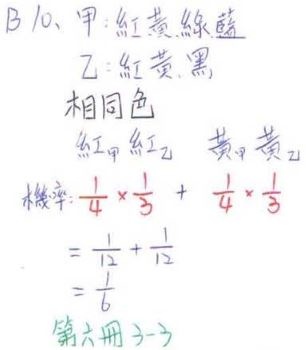 B 10、甲:紅黃綠藍
乙:紅黃黑
相同色
紅甲紅乙 黃甲黃乙
機率:1/4 × 1/3 + 1/4 × 1/3
= 1/12 + 1/12
= 1/6
第六冊 3-3